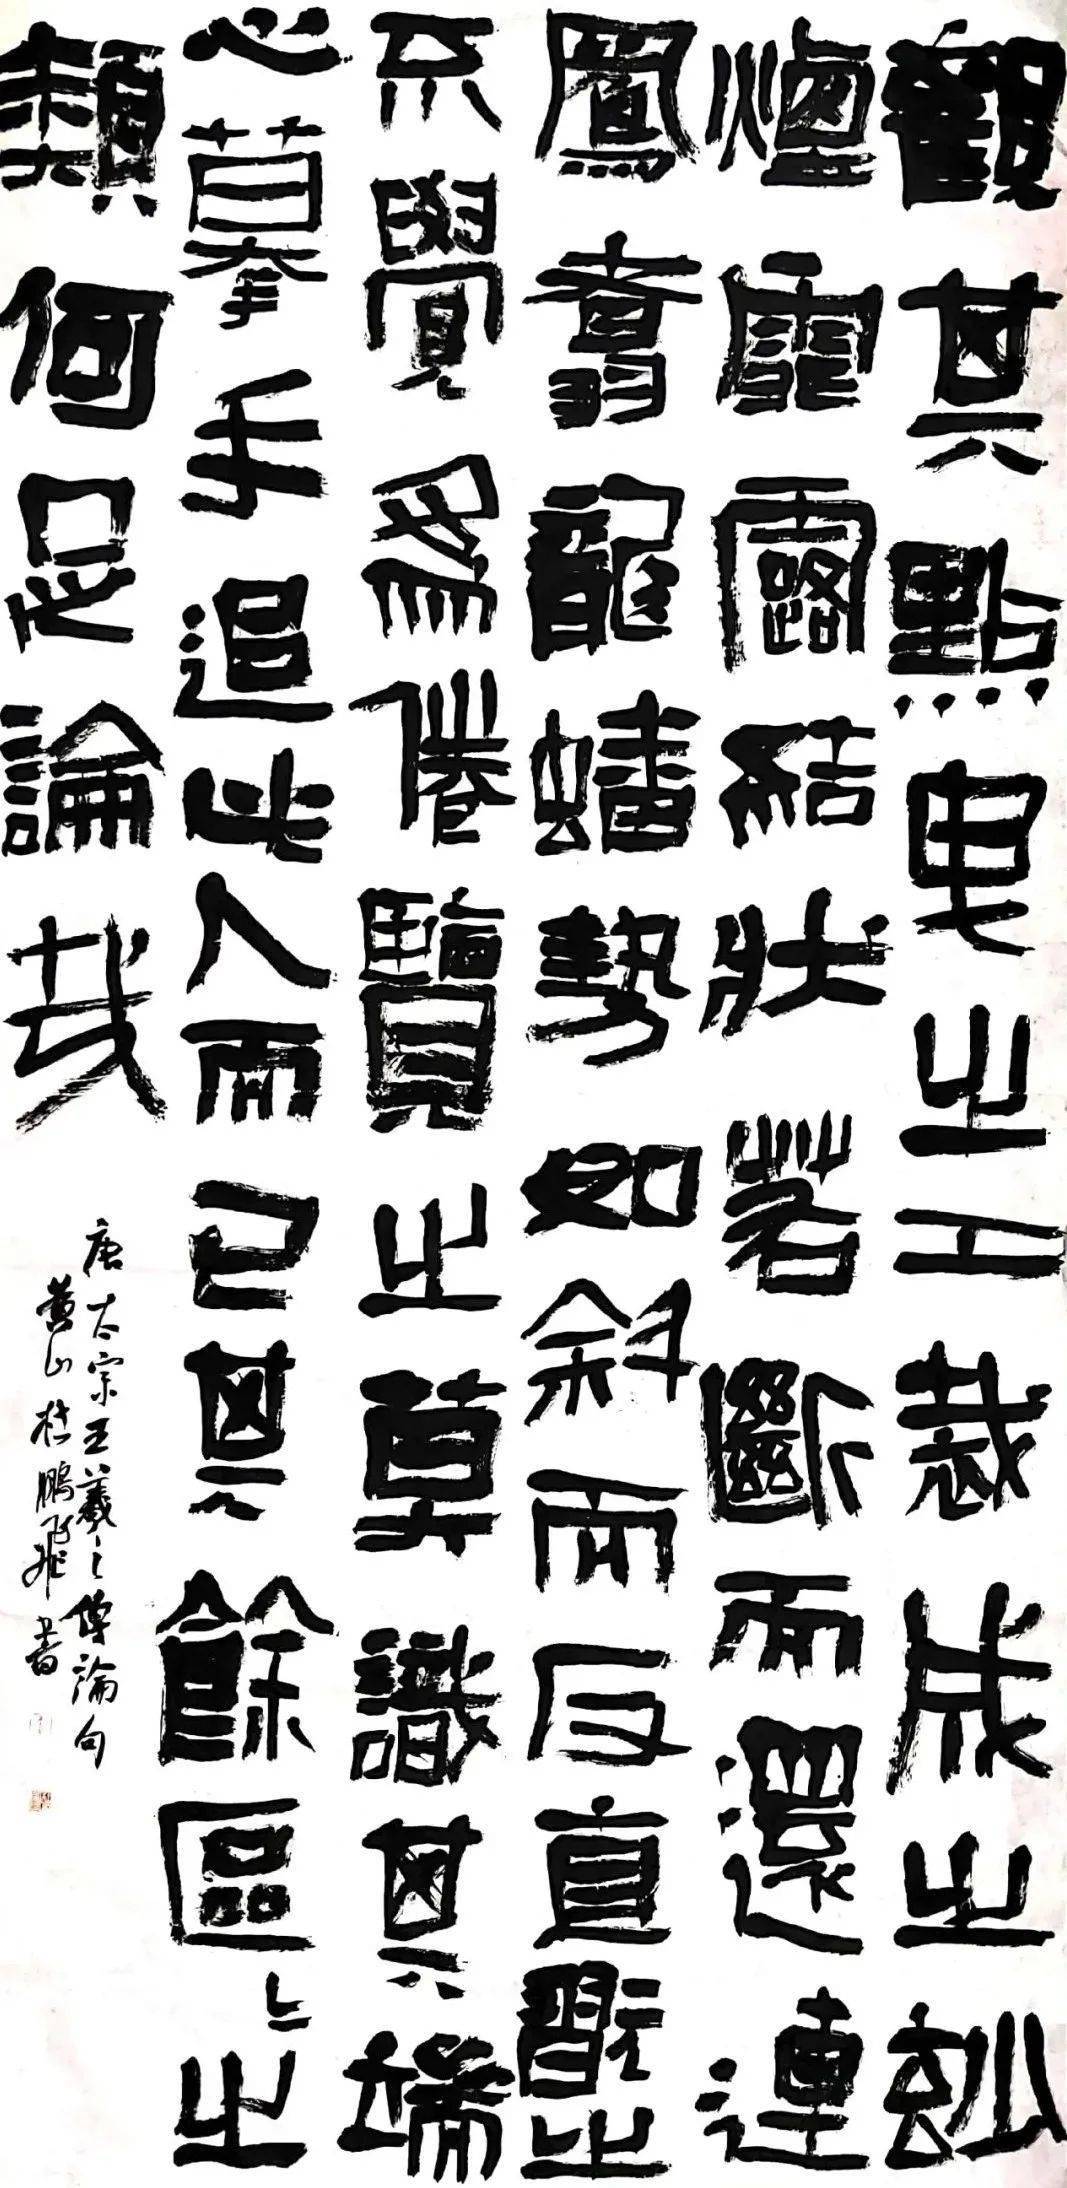 觀其點曳之工裁成之玅
煙霏露結狀若斷而還連
鳳翥龍蟠勢如斜而反直翫之
不覺爲倦覽之莫識其端
心摹手追此人而已其餘區〻之
類何足論哉
唐太宗王羲之傳論句
黄山杜鵬飛書